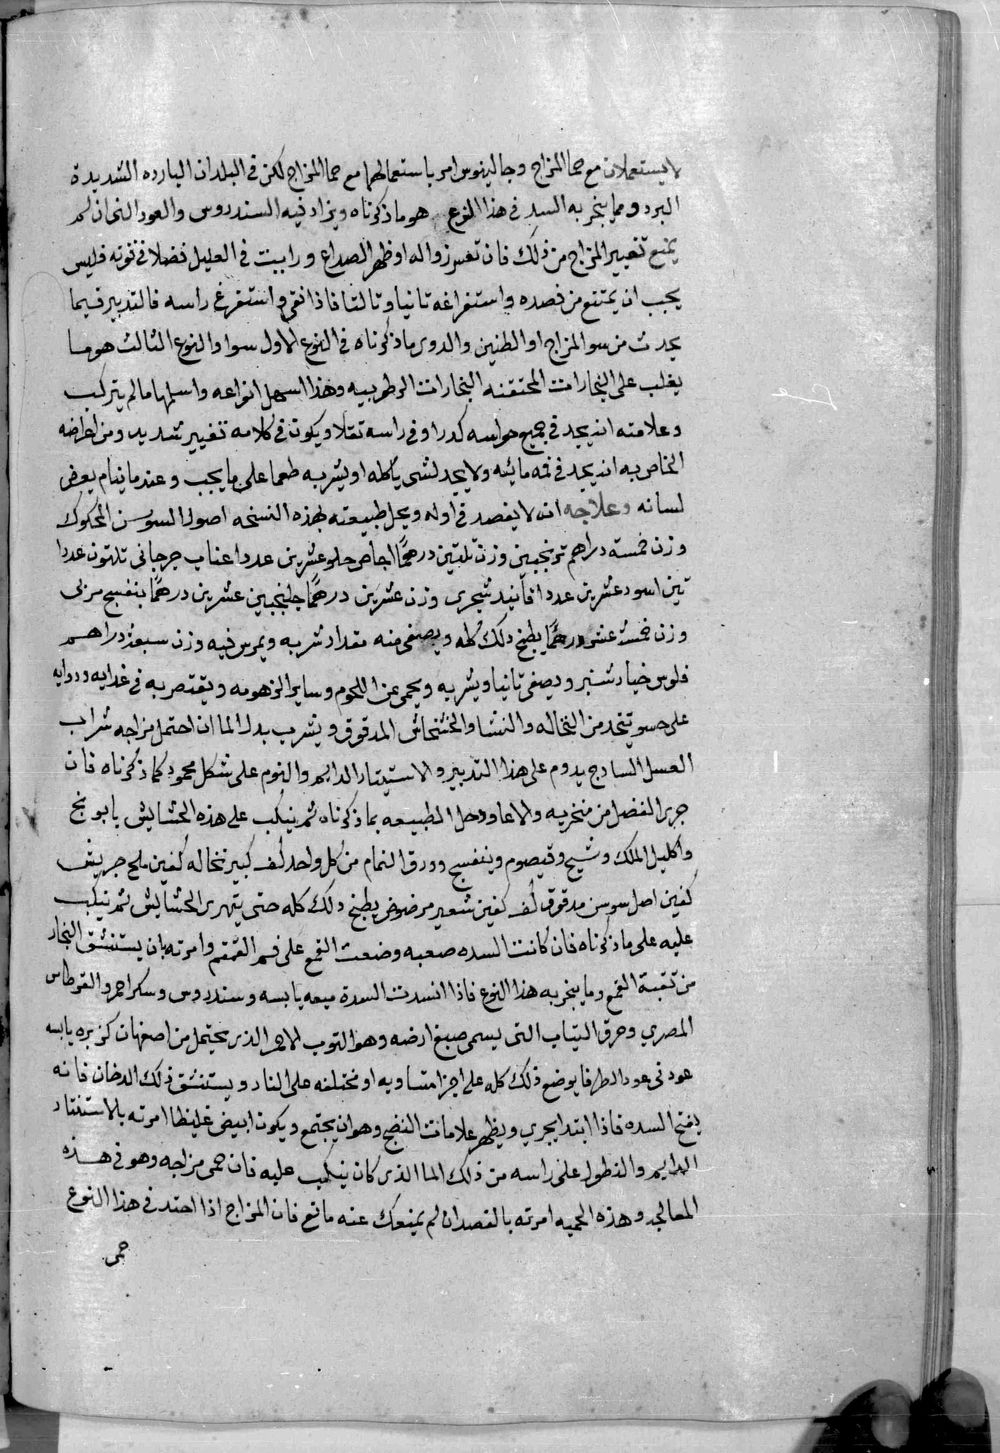 لا يستعملان مع حما المزاج وجالينوس امر باستعمالهما مع حما المزاج لكن في البلدان البارده الشديدة
البرد ومما يتبخر به السدد في هذا النوع هو ما ذكرناه ويزاد فيه السندروس والعود الني ان لم
يمنع تغيير المزاج من ذلك فان تعسر زواله او ظهر الصداع ورايت في العليل فضلا في قوته فليس
يجب ان يمتنع من فصده واستفراغه ثانيا وثالثا فاذا نقي واستفرغ راسه فالتدبير فيما
يحدث من سو المزاج او الطنين والدوي ما ذكرناه في النوع الاول سوا والنوع الثالث هو ما
يغلب على البخارات المحتقنه البخارات الرطوبيه وهذا اسهل انواعه واسلمها ما لم يتركب
وعلامته انه يجد في جميع حواسه كدرا وفي راسه ثقلا ويكون في كلامه تغيير شديد ومن اعراضه
الخاص به انه يجد في فمه مائيه ولا يجد لشي ياكله او يشربه طعما على ما يجب وعند ما ينام يعض
لسانه وعلاجه ان لا يفصد في اوله ويحل طبيعته بهذه النسخه اصول السوسن المحكوك
وزن خمسة دراهم ترنجبين وزن ثلثين درهمًا اجاص حلو عشرين عددا عناب جرجاني ثلثون عددا
تين اسود عشرين عددا فانيد شجري وزن عشرين درهمًا جلنجبين عشرين درهمًا بنفسج مربى
وزن خمسة عشر درهمًا يطبخ ذلك كله ويصفى منه مقدار شربه ويمرس فيه وزن سبعة دراهم
فلوس خيارشنبر ويصفى ثانيا ويشربه ويحمى عن اللحوم وساير الزهومه ويقتصر به في غدايه ودوايه
على حسو يتخذ من النخاله والنشا والخشخاش المدقوق ويشرب بدل الما ان احتمل مزاجه شراب
العسل الساذج يدوم على هذا التدبير والاستيثار الدايم والنوم على شكل محمود كما ذكرناه فان
جرى الفضل من منخريه والا عاود حل الطبيعه بما ذكرناه ثم ينكب على هذه الحشايش بابونج
واكليل الملك وشيح وقيصوم وبنفسج وورق النمام من كل واحد كف كبير نخاله كفين ملح جريش
كفين اصل سوس مدقوق كف كفين شعير مرضوض يطبخ ذلك كله حتى يتهرى الحشايش ثم ينكب
عليه على ما ذكرناه فان كانت السده صعبه وضعت القمع على فم القمقم وامرته بان يستنشق البخار
من ثقبة القمع وما يتبخر به هذا النوع فاذا انسدت السدة ميعه يابسه وسندروس وسكر احمر والقرطاس
المصري وحرق الثياب التي يسمى صبغ ارضه وهو الثوب الاحمر الذي يحتمل من اصفهان كزبره يابسه
عود ني عود الطرفا يوضع ذلك كله على اجزا متساويه او مختلفه على النار ويستنشق ذلك الدخان فانه
يفتح السده فاذا ابتدا يجري ويظهر علامات النضج وهو ان يجتمع ويكون ابيض غليظا امرته بالاستنثار
الدايم والنطول على راسه من ذلك الما الذي كان ينكب عليه فان حمى مزاجه وهو في هذه
المعالجه وهذه الحميه امرته بالفصد ان لم يمنعك عنه مانع فان المزاج اذا احتد في هذا النوع
حمى